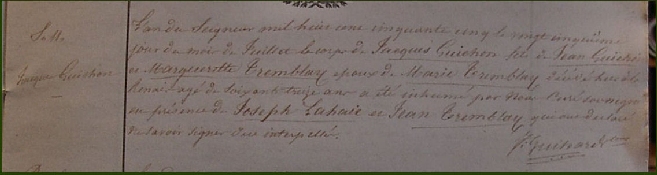 Jacques Guichon
L'an du Seigneur mil huit cent cinquante cinq le vingt cinquième
jour du mois de Juillet le corps de Jacques Guichon fils de Jean Guichon
et Marguerite Tremblay époux de Marie Tremblay décédé
âgé de soixante treize ans a été inhumé par Nous Curé soussigné
en présence de Joseph Lahaie et Jean Tremblay qui ont déclaré
ne savoir signer de ce interpellés.